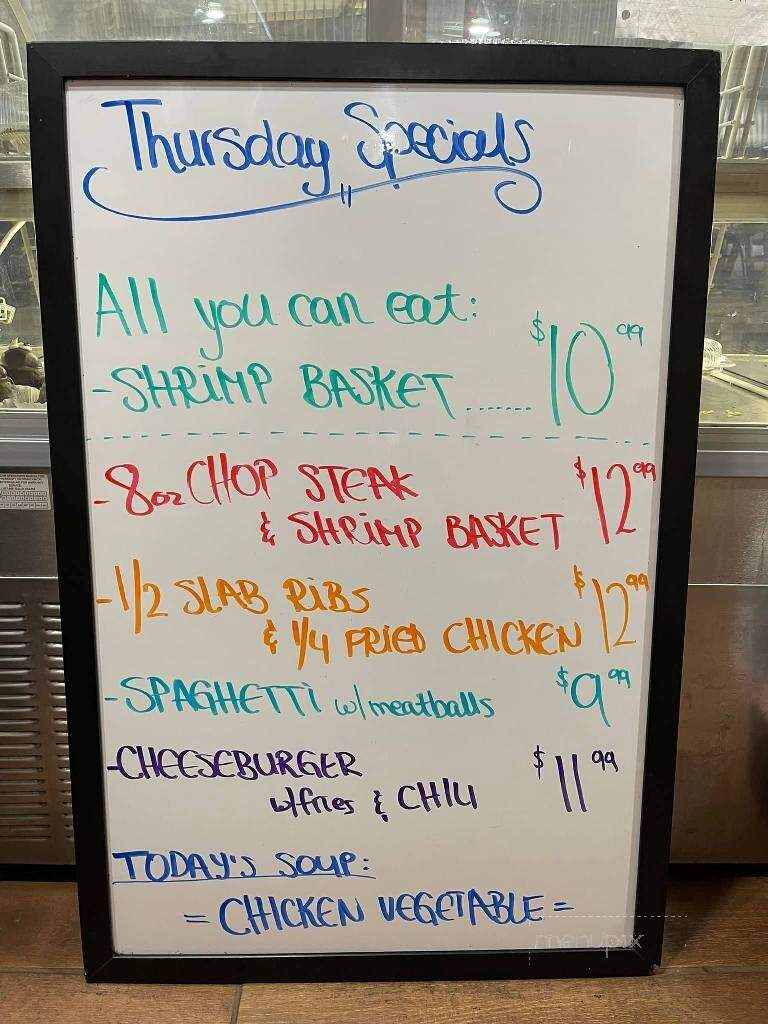 Thursday Specials
All you can eat:
-SHRIMP BASKET ...... $10 99
-8oz CHOP STEAK
& SHRIMP BASKET $12 99
-1/2 SLAB RIBS
& 1/4 FRIED CHICKEN $12 99
-SPAGHETTI w/meatballs $9 99
-CHEESEBURGER
w/fries & CH/U $11 99
TODAY'S SOUP:
= CHICKEN VEGETABLE =
menupix